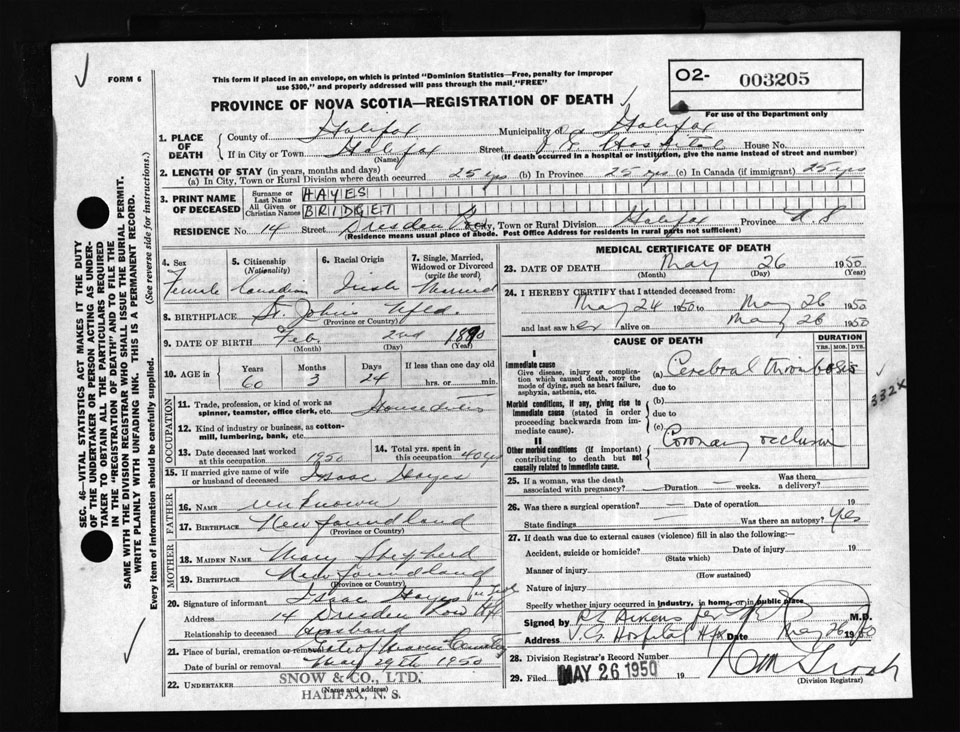 FORM 6
This form if placed in an envelope, on which is printed "Dominion Statistics—Free, penalty for improper
use $300," and properly addressed will pass through the mail, "FREE"
O2- 003205
For use of the Department only
PROVINCE OF NOVA SCOTIA—REGISTRATION OF DEATH
1. PLACE OF DEATH
County of Halifax Municipality of Halifax
If in City or Town Halifax Street Hospital House No.
(Name) (If death occurred in a hospital or institution, give the name instead of street and number)
2. LENGTH OF STAY (in years, months and days)
(a) In City, Town or Rural Division where death occurred 25 yrs (b) In Province 25 yrs (c) In Canada (if immigrant) 25 yrs
3. PRINT NAME OF DECEASED
Surname or Last Name HAYES
All Given or Christian Names BRIDGET
RESIDENCE No. 14 Street Dresden Row City, Town or Rural Division Halifax Province N.S
(Residence means usual place of abode. Post Office Address for residents in rural parts not sufficient)
4. Sex 5. Citizenship (Nationality) 6. Racial Origin 7. Single, Married, Widowed or Divorced (write the word)
Female Canadian Irish Married
8. BIRTHPLACE St. John's Nfld.
(Province or Country)
9. DATE OF BIRTH Feb. 2nd 1890
(Month) (Day) (Year)
10. AGE in Years Months Days If less than one day old
60 3 24 hrs. or min.
OCCUPATION
11. Trade, profession or kind of work as spinner, teamster, office clerk, etc. House duties
12. Kind of industry or business, as cotton-mill, lumbering, bank, etc.
13. Date deceased last worked at this occupation 1950
14. Total yrs. spent in this occupation 40 yrs
15. If married give name of wife or husband of deceased Isaac Hayes
FATHER
16. NAME unknown
17. BIRTHPLACE Newfoundland
(Province or Country)
MOTHER
18. MAIDEN NAME Mary Shepherd
19. BIRTHPLACE Newfoundland
(Province or Country)
20. Signature of informant Isaac Hayes
Address 14 Dresden Row Hfx
Relationship to deceased Husband
21. Place of burial, cremation or removal Gate of Heaven Cemetery
Date of burial or removal May 29th 1950
22. UNDERTAKER SNOW & CO., LTD.
(Name and address)
HALIFAX, N. S.
MEDICAL CERTIFICATE OF DEATH
23. DATE OF DEATH May 26 1950
(Month) (Day) (Year)
24. I HEREBY CERTIFY that I attended deceased from:
May 24 1950 to May 26 1950
and last saw her alive on May 26 1950
CAUSE OF DEATH
DURATION
YRS. MOS. DYS.
I
Immediate cause
Give disease, injury or complication which caused death, NOT the mode of dying, such as heart failure, asphyxia, asthenia, etc.
(a) Cerebral thrombosis
due to
332X
Morbid conditions, if any, giving rise to immediate cause (stated in order proceeding backwards from immediate cause).
(b)
due to
(c)
II
Other morbid conditions (if important) contributing to death but not causally related to immediate cause.
Coronary occlusion
25. If a woman, was the death associated with pregnancy? — Duration — weeks. Was there a delivery?
26. Was there a surgical operation? — Date of operation 19
State findings — Was there an autopsy? Yes
27. If death was due to external causes (violence) fill in also the following:—
Accident, suicide or homicide? Date of injury 19
(State which)
Manner of injury
(How sustained)
Nature of injury
Specify whether injury occurred in industry, in home, or in public place
Signed by M.D.
Address V.G. Hospital Hfx Date May 26 1950
28. Division Registrar's Record Number
29. Filed MAY 26 1950 19
(Division Registrar)
SEC. 46—VITAL STATISTICS ACT MAKES IT THE DUTY
OF THE UNDERTAKER OR PERSON ACTING AS UNDER-
TAKER TO OBTAIN ALL THE PARTICULARS REQUIRED
IN THE "REGISTRATION OF DEATH" AND TO FILE THE
SAME WITH THE DIVISION REGISTRAR WHO SHALL ISSUE THE BURIAL PERMIT.
WRITE PLAINLY WITH UNFADING INK. THIS IS A PERMANENT RECORD.
Every item of information should be carefully supplied. (See reverse side for instructions.)